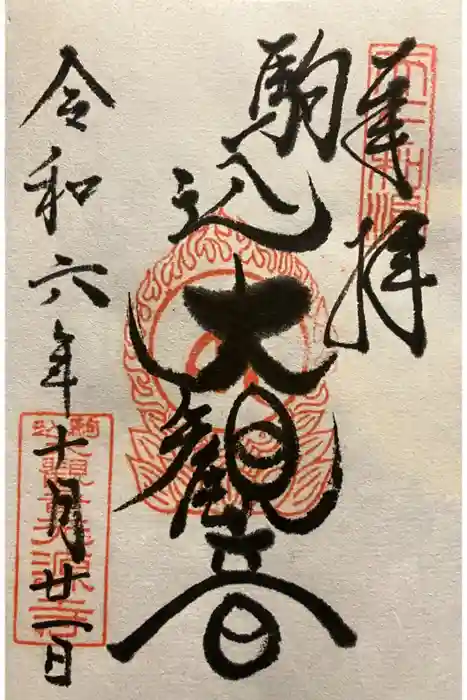 奉拝
駒込
大観音
令和六年十月廿一日